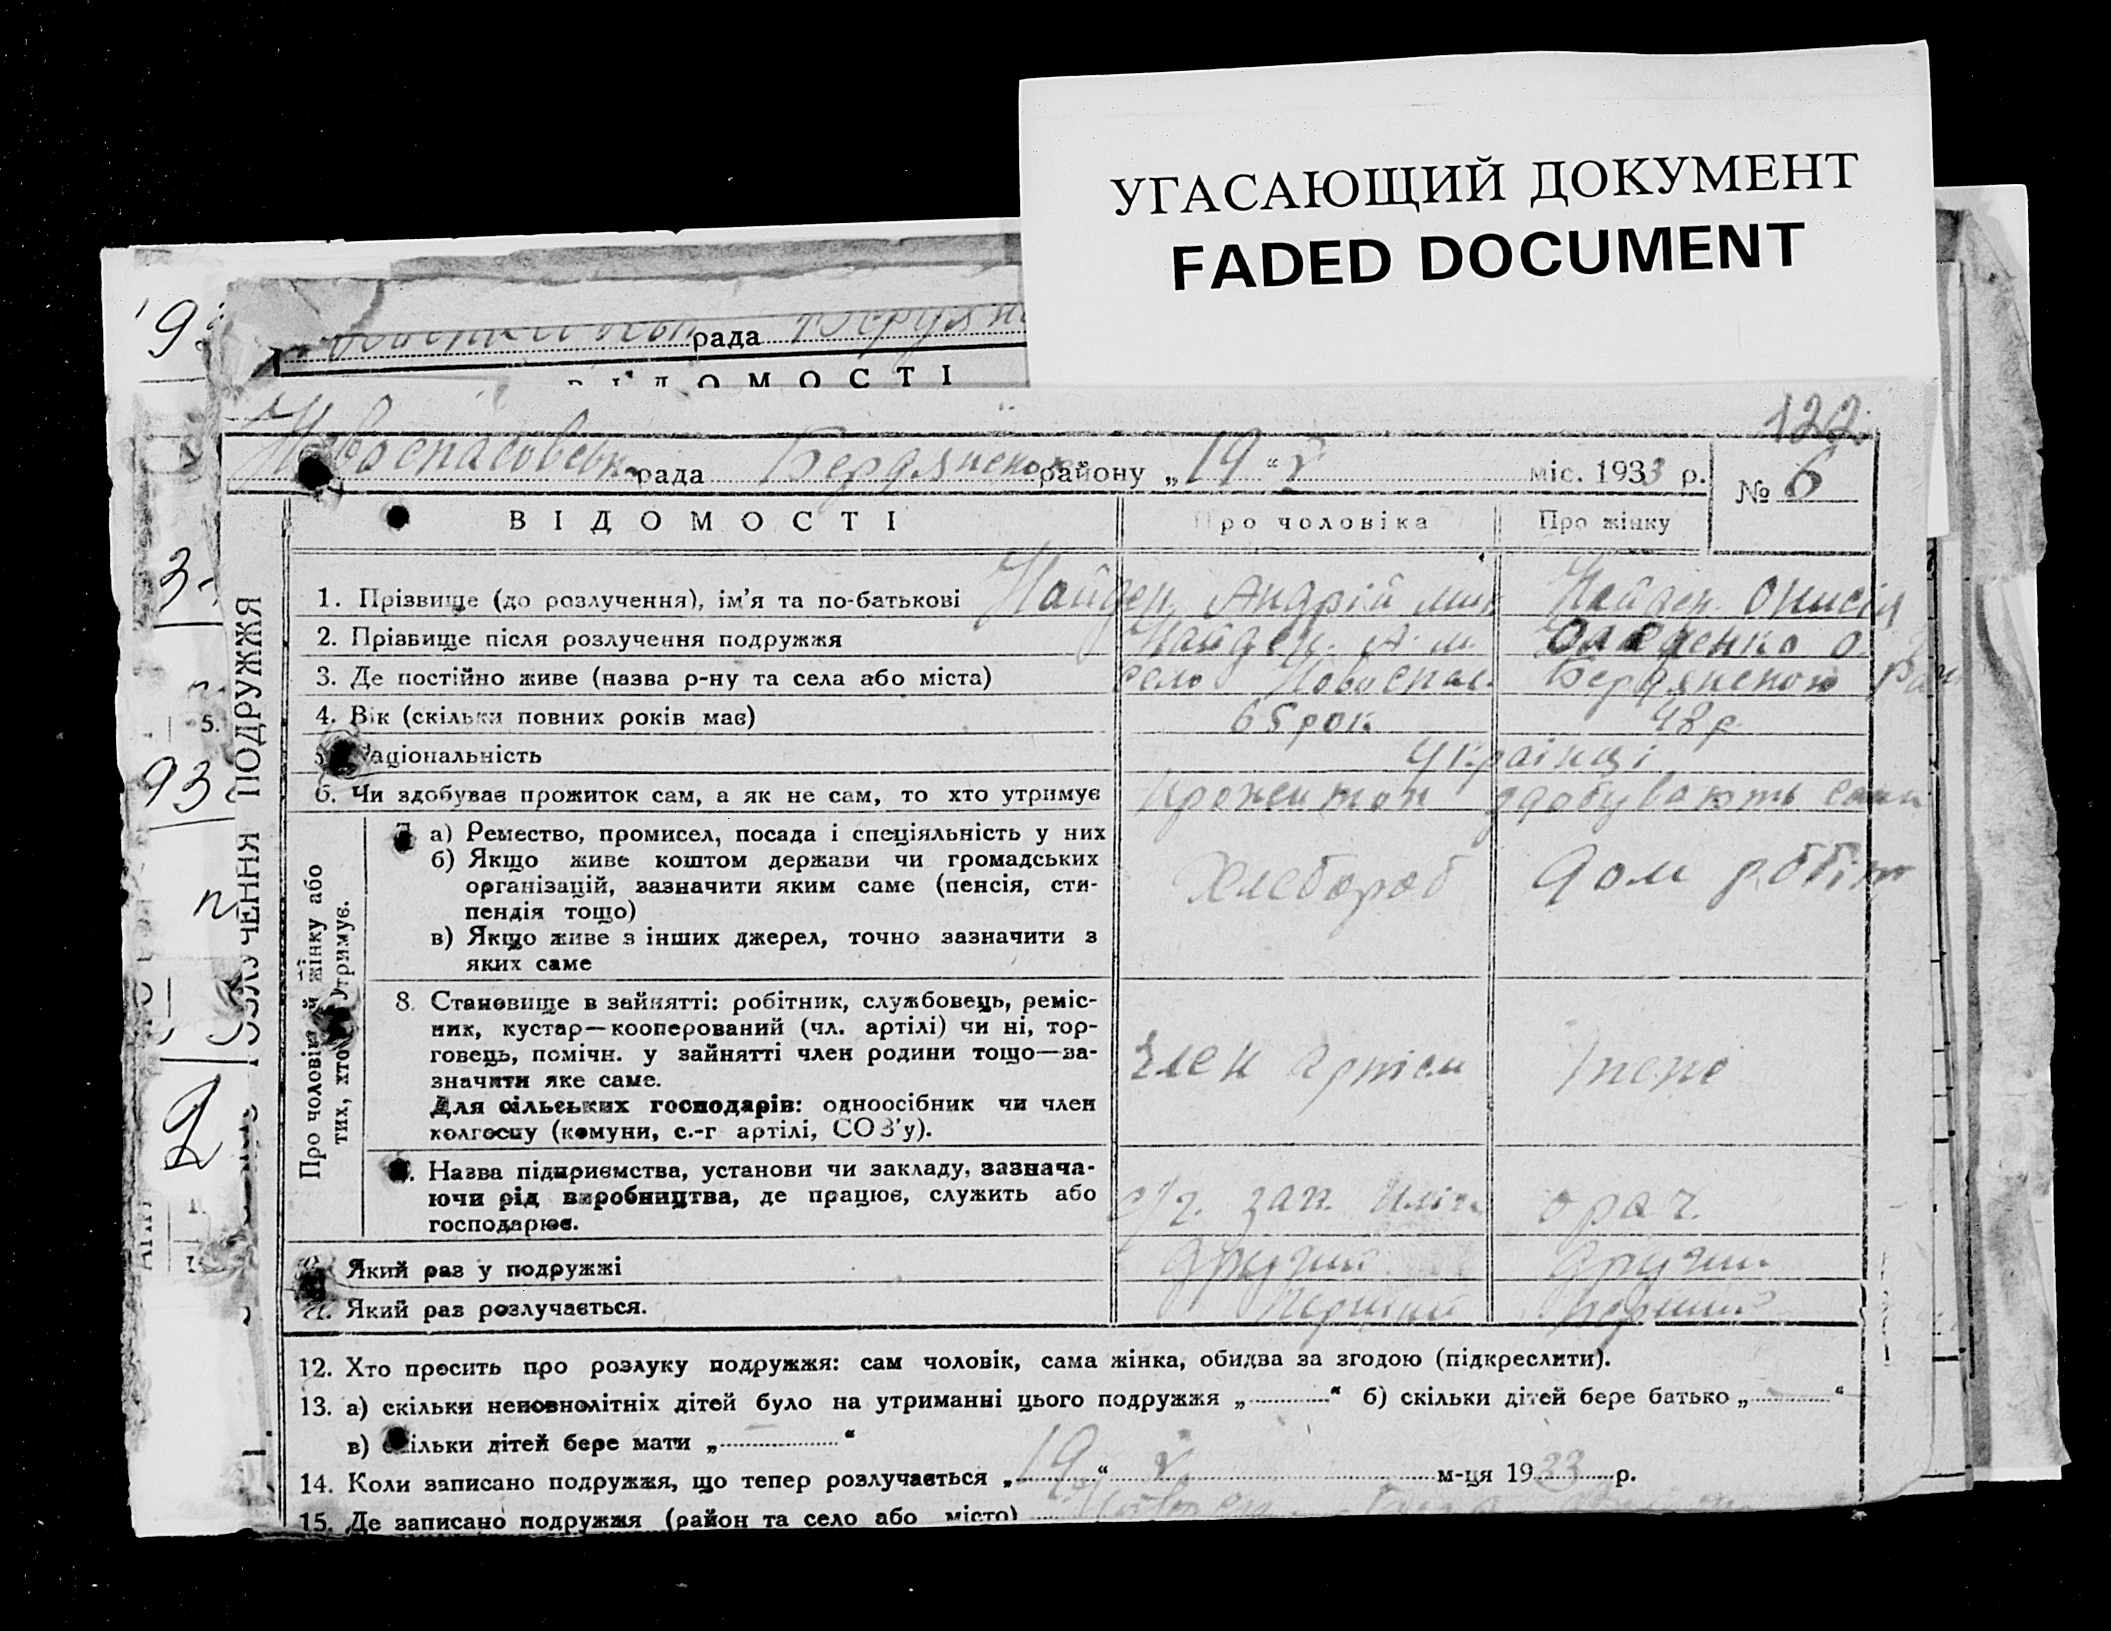 УГАСАЮЩИЙ ДОКУМЕНТ
FADED DOCUMENT
рада
ВІДОМОСТІ
122
Новоспасовськ рада Бердянськ району „19“ V міс. 1933 р.
№ 6
ВІДОМОСТІ
Про чоловіка
Про жінку
РОЗЛУЧЕННЯ ПОДРУЖЖЯ
1. Прізвище (до розлучення), ім’я та по-батькові Найден Андрій Мик Найден Онисія
2. Прізвище після розлучення подружжя Найден А. М. О.
3. Де постійно живе (назва р-ну та села або міста) село Новоспас. Бердянського
4. Вік (скільки повних років має) 65 рок 48 р
5. Національність Українці
6. Чи здобував прожиток сам, а як не сам, то хто утримує здобувають сами
Про чоловіка й жінку або тих, хто їх утримує.
7. а) Ремество, промисел, посада і спеціяльність у них
б) Якщо живе коштом держави чи громадських
організацій, зазначити яким саме (пенсія, сти-
пендія тощо)
в) Якщо живе з інших джерел, точно зазначити з
яких саме
Хлебороб
Дом робіт
8. Становище в зайнятті: робітник, службовець, реміс-
ник, кустар—кооперований (чл. артілі) чи ні, тор-
говець, помічн. у зайнятті член родини тощо—за-
значити яке саме.
Для сільських господарів: одноосібник чи член
колгоспу (комуни, с.-г артілі, СОЗ’у).
член артіли
9. Назва підприємства, установи чи закладу, зазнача-
ючи рід виробництва, де працює, служить або
господарює.
10. Який раз у подружжі другий другий
11. Який раз розлучається. перший перший
12. Хто просить про розлуку подружжя: сам чоловік, сама жінка, обидва за згодою (підкреслити).
13. а) скільки неповнолітніх дітей було на утриманні цього подружжя „ “ б) скільки дітей бере батько „ “
в) скільки дітей бере мати „ “
14. Коли записано подружжя, що тепер розлучається „19“ V м-ця 1933 р.
15. Де записано подружжя (район та село або місто)